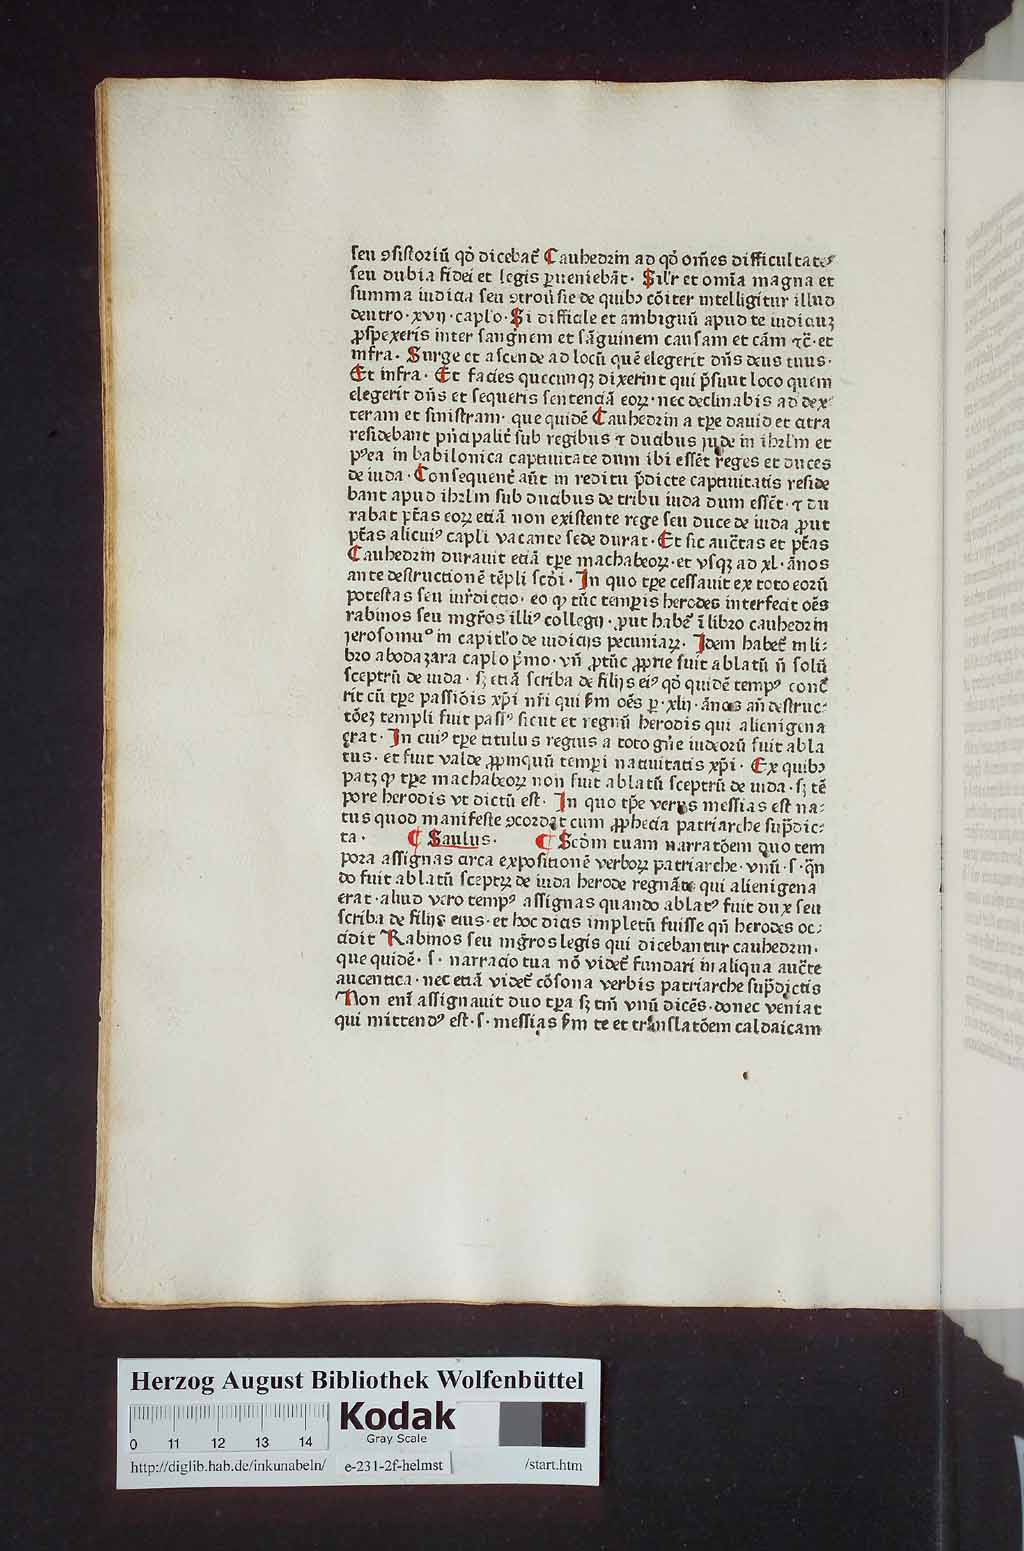 seu ꝯsistoriū qd̓ dicebat᷑ Cauhedrin ad qd̓ om̄es difficultates
seu dubia fidei et legis ꝑueniebāt · Sil'r et om̄ia magna et
summa iudicia seu ꝯtrou̓sie de quibꝫ cōiter intelligitur illud
deutro · xvij · capl'o · Si difficile et ambiguū apud te iudiciuꝫ
ꝓspexeris inter sangn̓em et sāguinem causam et cām ⁊c̄ · et
infra · Surge et ascende ad locū quē elegerit dn̄s deus tuus ·
Et infra · Et facies quecunqꝫ dixerint qui p̄sunt loco quem
elegerit dn̄s et sequeris sentenciā eoꝝ · nec declinabis ad dex-
teram et sinistram · que quidē Cauhedrin a tꝑe dauid et citra
residebant pn̓cipalit᷑ sub regibus ⁊ ducibus jude in ihrl̄m et
pꝰea in babilonica captiuitate dum ibi essēt reges et duces
de iuda · Consequent᷑ aūt in reditu p̄dicte captiuitatis reside
bant apud ihrl̄m sub ducibus de tribu iuda dum essēt · ⁊ du
rabat pt̄as eoꝝ etiā non existente rege seu duce de iuda ꝓut
pt̄as alicuiꝰ capli vacante sede durat · Et sic auc̄tas et pt̄as
Cauhedrin durauit etiā tꝑe machabeoꝝ · et vsqꝫ ad xl · ānos
ante destructionē tēpli scd̓i · In quo tꝑe cessauit ex toto eorū
potestas seu iur̓dictio · eo ꝙ tūc temꝑis herodes interfecit oēs
rabinos seu mgr̄os illiꝰ collegij · ꝓut habet᷑ ī libro cauhedrin
jerosomuº in capitl'o de iudicijs pecuniaꝝ · Idem habet᷑ in li-
bro abodazara caplo pͥmo · vn̄ ꝓtūc ꝓprie fuit ablatū n̄ solū
sceptrū de iuda · sꝫ etiā scriba de filijs eiꝰ qd̓ quidē tempꝰ concr̄
rit cū tꝑe passiōis xp̄i nr̄i qui ẜm oēs ꝑ · xlij · ānos an̄ destruc-
tōeꝫ templi fuit passꝰ sicut et regnū herodis qui alienigena
erat · In cuiꝰ tꝑe titulus regius a toto gn̄e iudeorū fuit abla
tus · et fuit valde ꝓpinquū temꝑi natiuitatis xp̄i · Ex quibꝫ
patꝫ ꝙ tꝑe machabeoꝝ non fuit ablatū sceptrū de iuda · sꝫ tē
pore herodis vt dictū est · In quo tp̄e verus messias est na-
tus quod manifeste ꝯcordat cum ꝓphecia patriarche sup̄dic-
ta · ¶ Saulus · ¶ Scd̓m tuam narratōem duo tem
pora assignas circa expositionē verboꝝ patriarche · vnū · s · qn̄
do fuit ablatū sceptꝝ de iuda herode regnāte qui alienigena
erat · aliud vero tempꝰ assignas quando ablatꝰ fuit dux seu
scriba de filijs eius · et hoc dicis impletū fuisse qn̄ herodes oc-
cidit Rabinos seu mgr̄os legis qui dicebantur cauhedrin ·
que quidē · s · narracio tua nō videt᷑ fundari in aliqua auc̄te
autentica · nec etiā videt᷑ cōsona verbis patriarche sup̄dictis
Non eni᷑ assignauit duo tꝑa sꝫ tm̄ vnū dicēs · donec veniat
qui mittendꝰ est · s · messias ẜm te et translatōem caldaicam
Herzog August Bibliothek Wolfenbüttel
0 11 12 13 14
Kodak
Gray Scale
http://diglib.hab.de/inkunabeln/ e-231-2f-helmst /start.htm